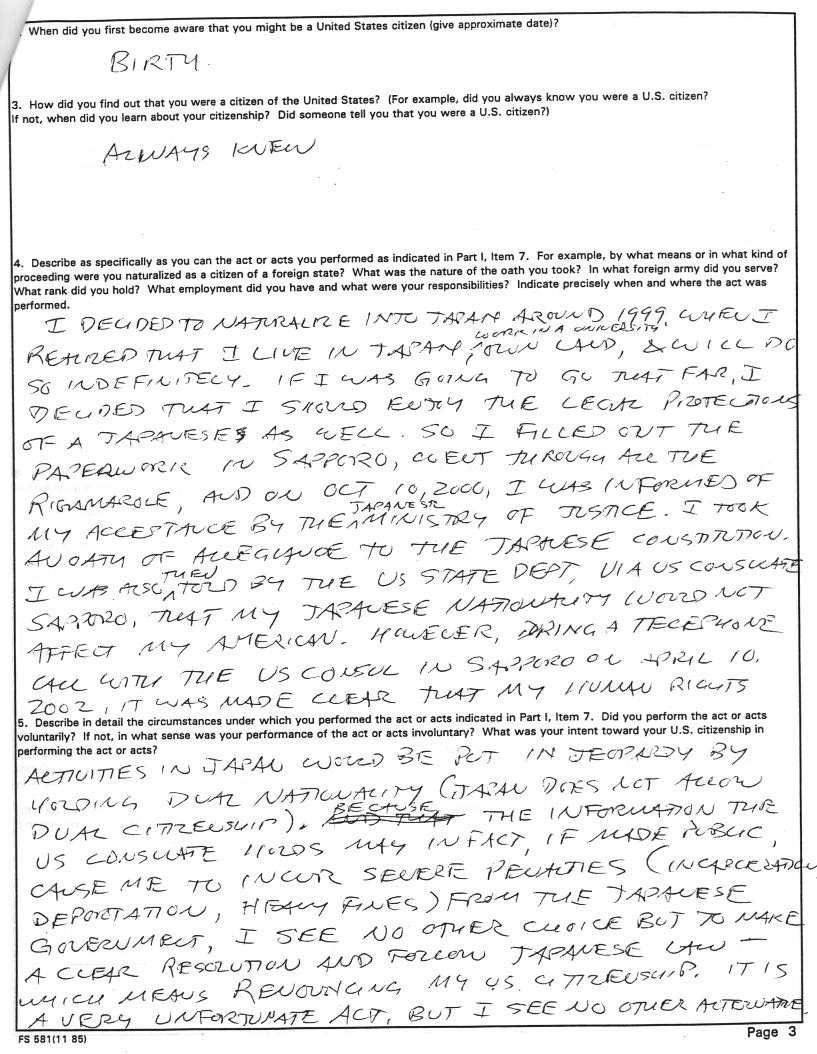 . When did you first become aware that you might be a United States citizen (give approximate date)?
BIRTH.
3. How did you find out that you were a citizen of the United States? (For example, did you always know you were a U.S. citizen?
If not, when did you learn about your citizenship? Did someone tell you that you were a U.S. citizen?)
ALWAYS KNEW
4. Describe as specifically as you can the act or acts you performed as indicated in Part I, Item 7. For example, by what means or in what kind of
proceeding were you naturalized as a citizen of a foreign state? What was the nature of the oath you took? In what foreign army did you serve?
What rank did you hold? What employment did you have and what were your responsibilities? Indicate precisely when and where the act was
performed.
I DECIDED TO NATURALIZE INTO JAPAN AROUND 1999, WHEN I
WORK IN A UNIVERSITY,
REALIZED THAT I LIVE IN JAPAN, OWN LAND, & WILL DO
SO INDEFINITELY. IF I WAS GOING TO GO THAT FAR, I
DECIDED THAT I SHOULD ENJOY THE LEGAL PROTECTIONS
OF A JAPANESE AS WELL. SO I FILLED OUT THE
PAPERWORK IN SAPPORO, WENT THROUGH ALL THE
RIGAMAROLE, AND ON OCT 10, 2000, I WAS INFORMED OF
JAPANESE
MY ACCEPTANCE BY THE MINISTRY OF JUSTICE. I TOOK
AN OATH OF ALLEGIANCE TO THE JAPANESE CONSTITUTION.
THEN
I WAS ALSO TOLD BY THE US STATE DEPT, VIA US CONSULATE
SAPPORO, THAT MY JAPANESE NATIONALITY WOULD NOT
AFFECT MY AMERICAN. HOWEVER, DRING A TELEPHONE
CALL WITH THE US CONSUL IN SAPPORO ON APRIL 10,
2002, IT WAS MADE CLEAR THAT MY HUMAN RIGHTS
5. Describe in detail the circumstances under which you performed the act or acts indicated in Part I, Item 7. Did you perform the act or acts
voluntarily? If not, in what sense was your performance of the act or acts involuntary? What was your intent toward your U.S. citizenship in
performing the act or acts?
ACTIVITIES IN JAPAN WOULD BE PUT IN JEOPARDY BY
HOLDING DUAL NATIONALITY (JAPAN DOES NOT ALLOW
BECAUSE
DUAL CITIZENSHIP). THE INFORMATION THE
US CONSULATE HOLDS MAY IN FACT, IF MADE PUBLIC,
CAUSE ME TO INCUR SEVERE PENALTIES (INCARCERATION
DEPORTATION, HEAVY FINES) FROM THE JAPANESE
GOVERNMENT, I SEE NO OTHER CHOICE BUT TO MAKE
A CLEAR RESOLUTION AND FOLLOW JAPANESE LAW —
WHICH MEANS RENOUNCING MY US CITIZENSHIP. IT IS
A VERY UNFORTUNATE ACT, BUT I SEE NO OTHER ALTERNATIVE.
FS 581(11 85)
Page 3